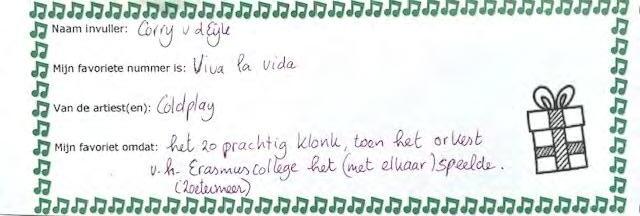 Naam invuller: Corry v d Eijk
Mijn favoriete nummer is: Viva la vida
Van de artiest(en): Coldplay
Mijn favoriet omdat: het zo prachtig klonk, toen het orkest
v.h. Erasmuscollege het (met elkaar) speelde.
(Zoetermeer)